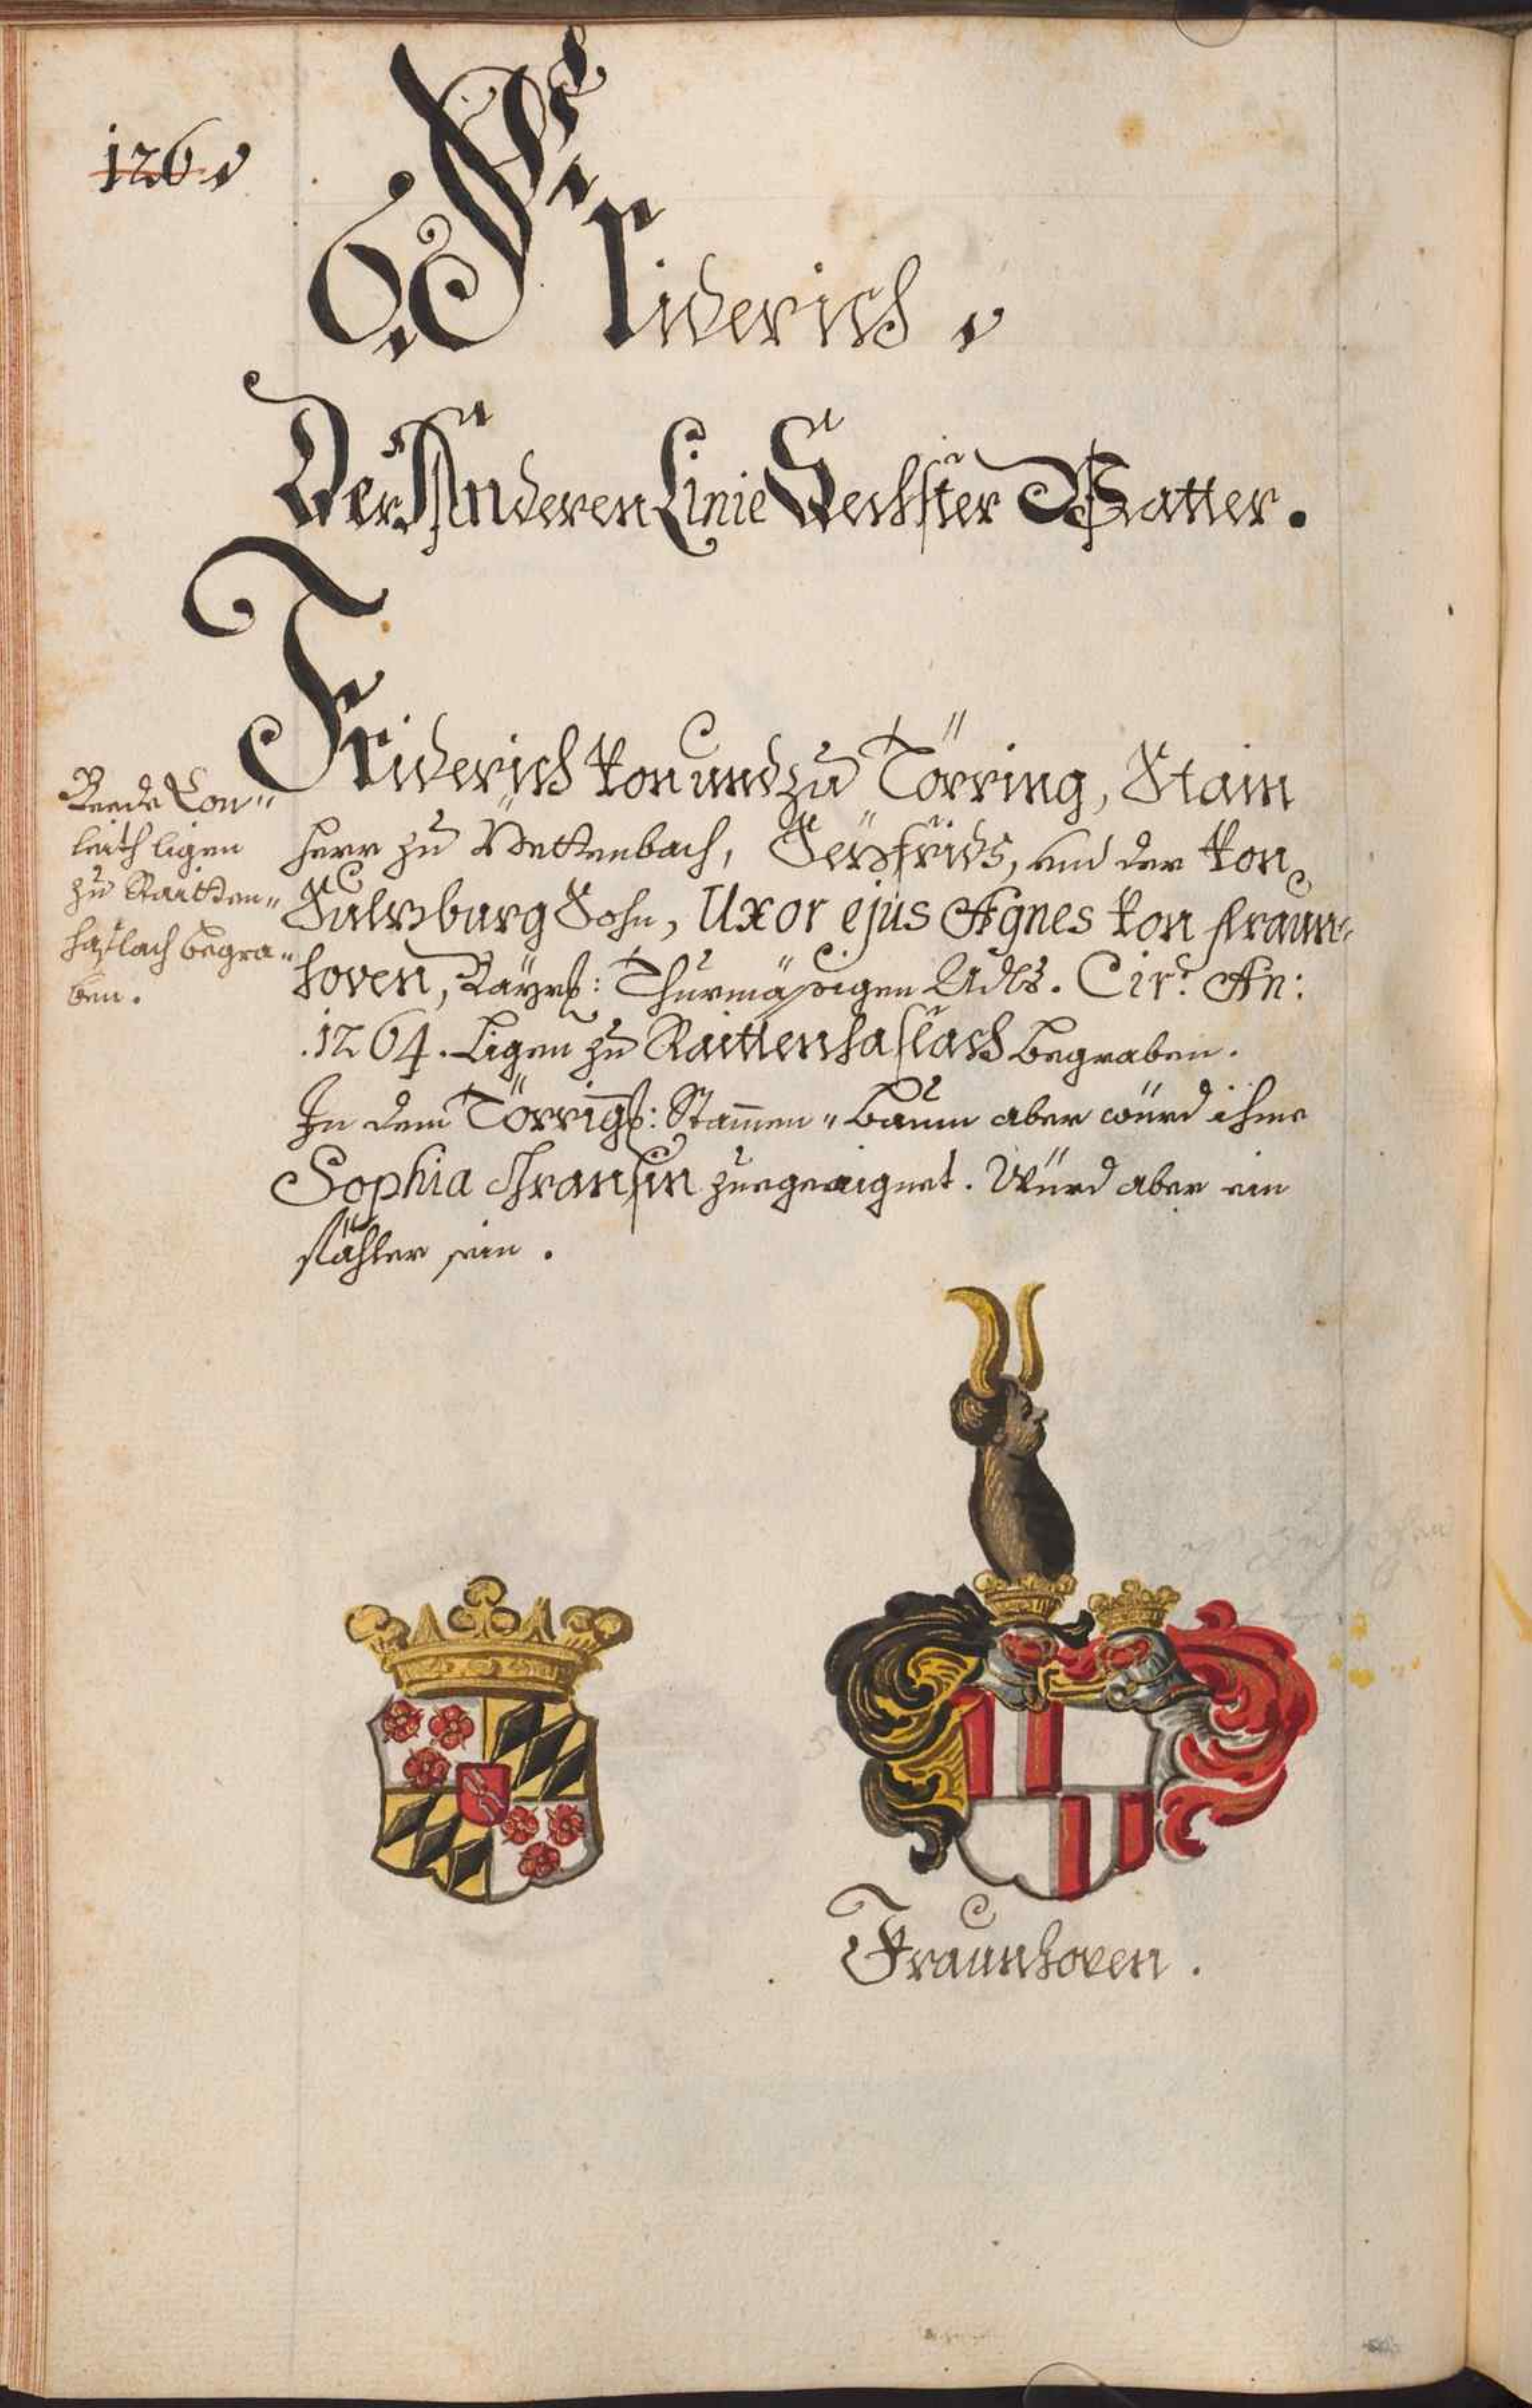 126.
Friderich.
Der Anderen Linie Sechster Vatter.
Friderich von und zu Törring, Stain
Herr zu Pettenbach, Seyfrids, und der von
Sulzburg Sohn, Uxor ejus Agnes von Fraun-
hoven, Bayrß: Thurmäßigen Adls. Cir: An:
.1264. Ligen zu Raittenhaslach begraben.
In dem Törringß: Stammen-Baum aber würd ihme
Sophia zuegeaignet. Würd aber ein
fähler sein.
Beede Con-
leith ligen
zu Raitten-
haslach begra-
ben.
Fraunhoven.